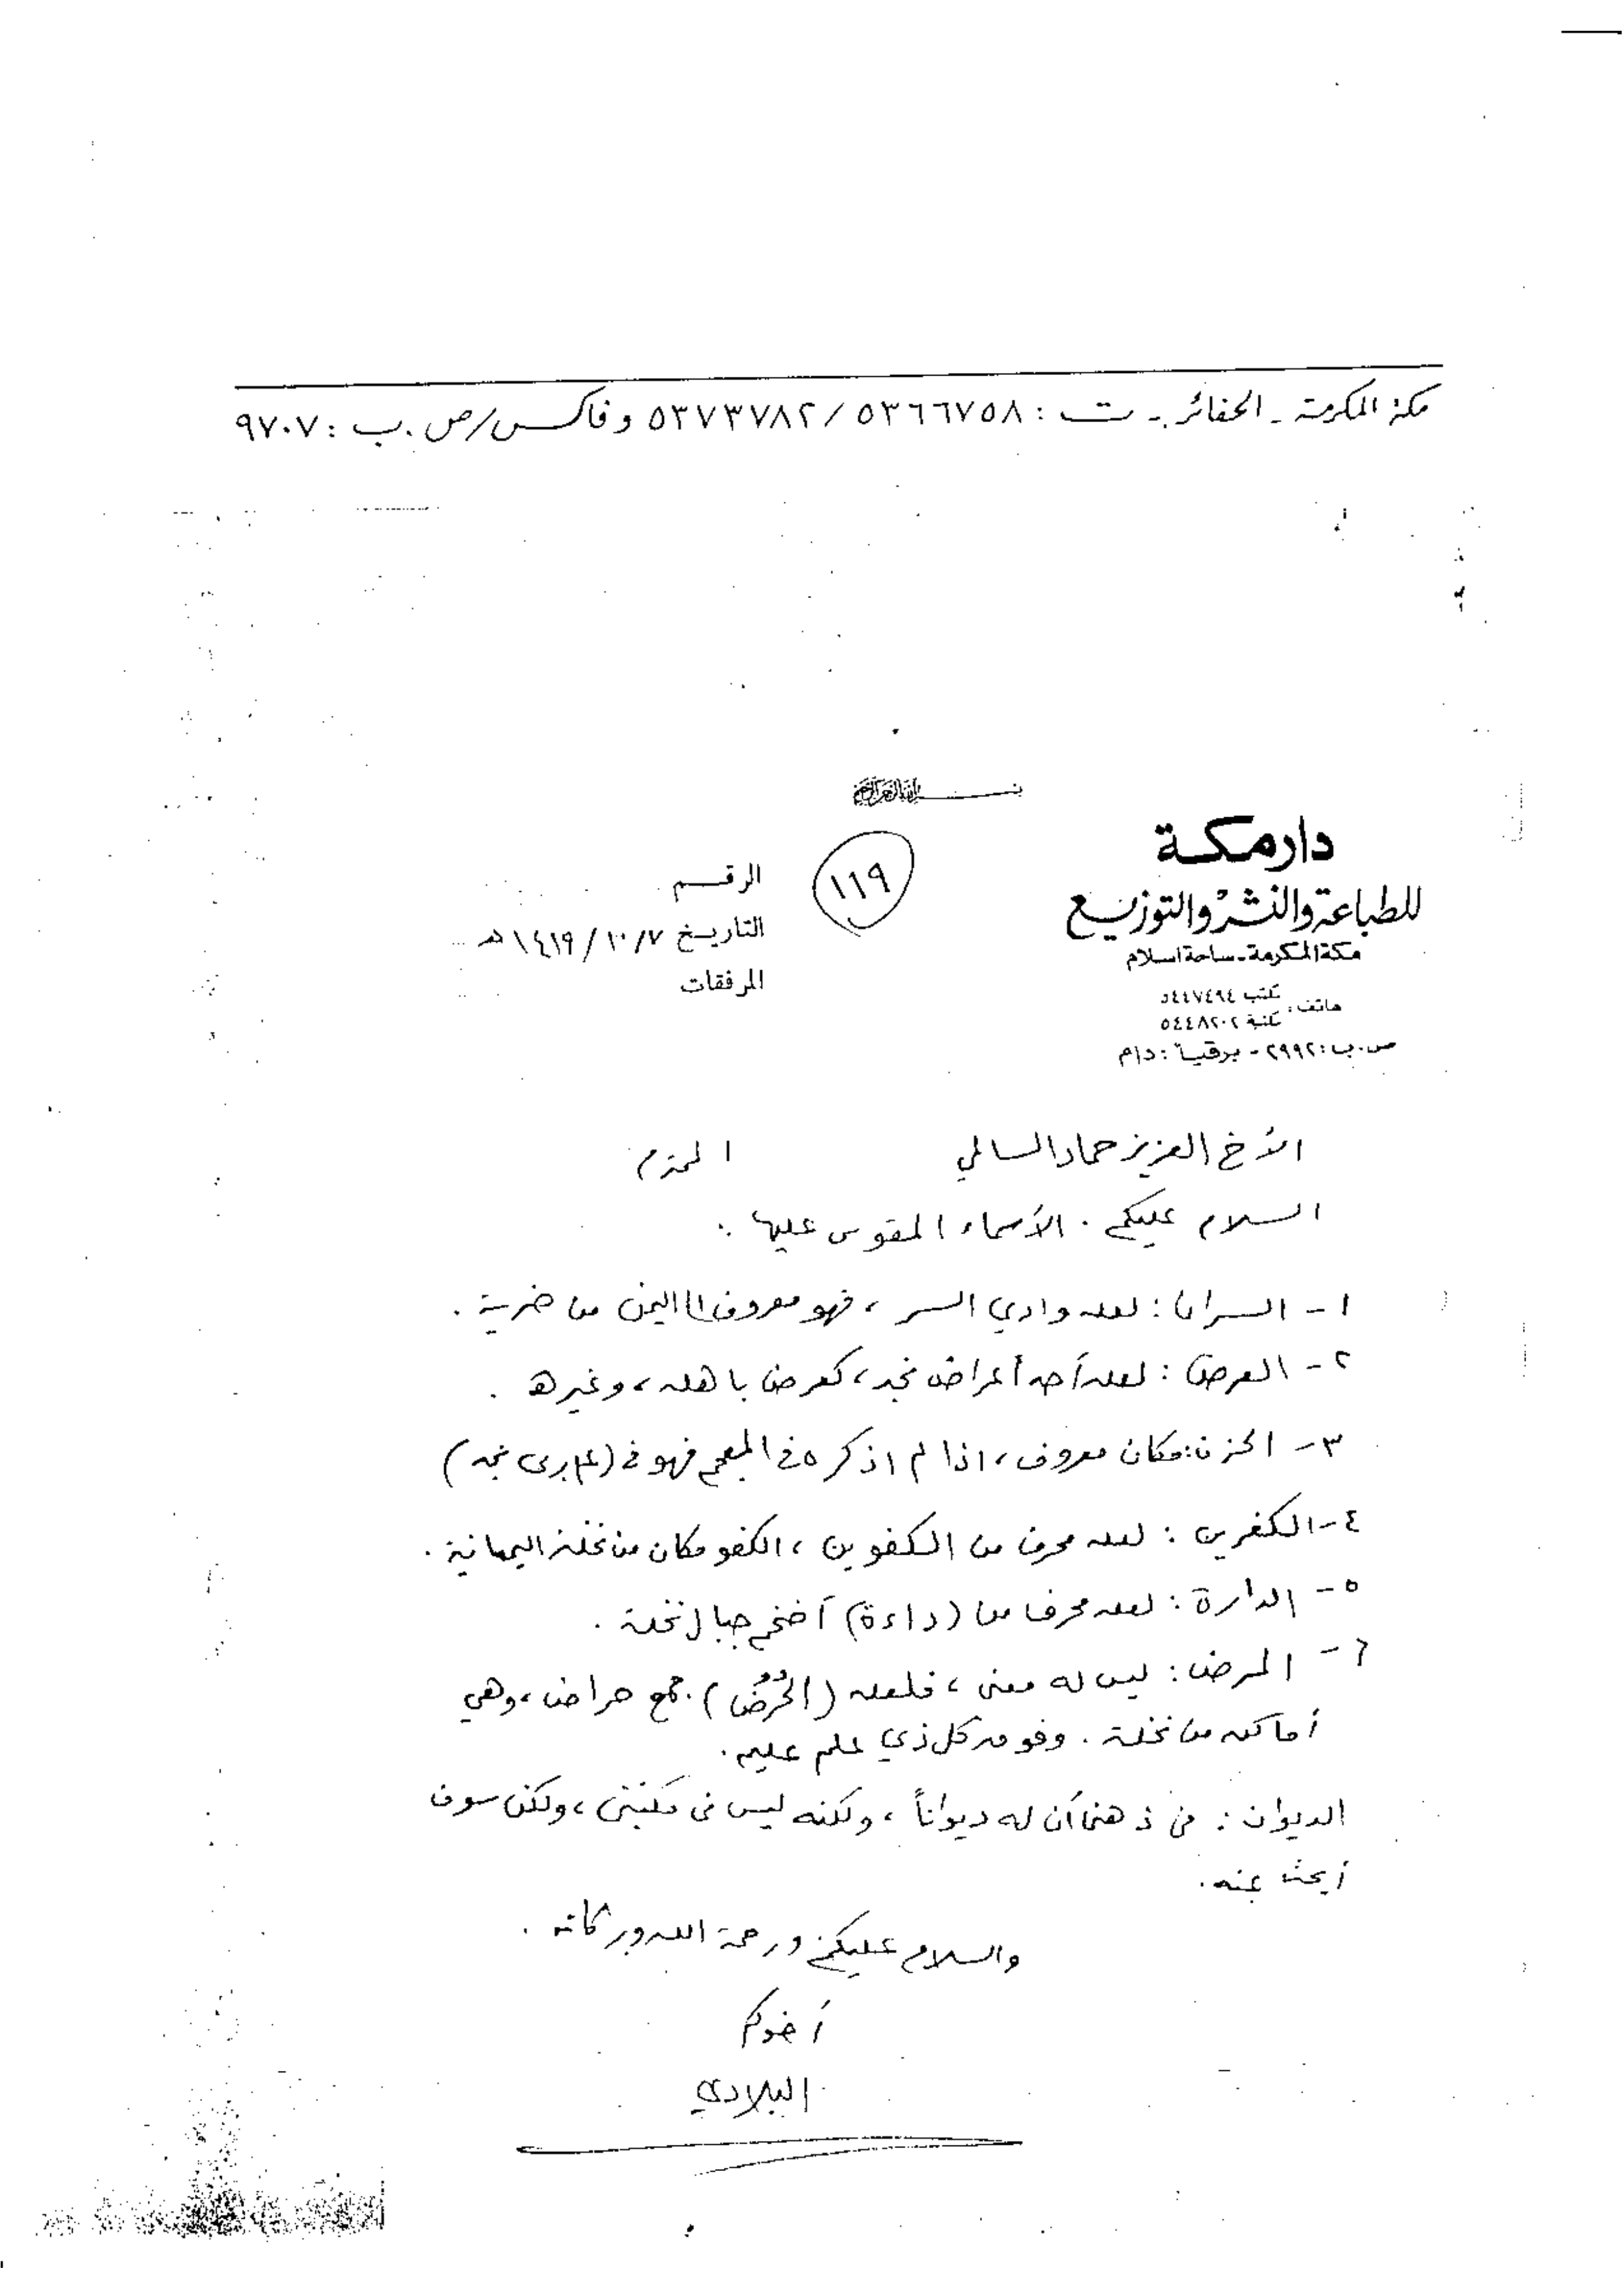 مكة المكرمة - الحفائر - ت : ٥٣٦٦٧٥٨ / ٥٣٧٣٧٨٢ وفاكس/ص . ب : ٩٧٠٧
دار مكة
للطباعة والنشر والتوزيع
مكة المكرمة - ساحة اسلام
هاتف : مكتب ٥٤٤٧٤٩٤
مكتبة ٥٤٤٨٢٠٢
ص.ب: ٢٩٩٢ - برقيا : دام
١١٩
الرقم
التاريخ ١٠/٧ / ١٤١٩هـ
المرفقات
الأخ العزيز حماد السالمي المحترم
السلام عليكم . الأسماء المقوس عليها :
١ - السران : لعله وادي السر ، فهو معروف إلى اليمن من ضرية .
٢ - العرض : لعله أحد أعراض نجد ، كعرض باهله ، وغيره .
٣ - الحزن : مكان معروف ، اذا لم اذكره في المعجم فهو في ( نجد )
٤ - الكفرين : لعله محرف من الكفوين ، الكفو مكان من نخلة اليمانية .
٥ - الدارة : لعله محرفا من (داءة) أضخم جبال نخلة .
٦ - المرض : ليس له معنى ، فلعله (الحُرُض) . جمع حراض ، وهي
أماكن من نخلة . وفوق كل ذي علم عليم .
الديوان : في ذهني أن له ديواناً ، ولكنه ليس في مكتبتي ، ولكن سوف
أبحث عنه .
والسلام عليكم ورحمة الله وبركاته .
أخوكم
البلادي